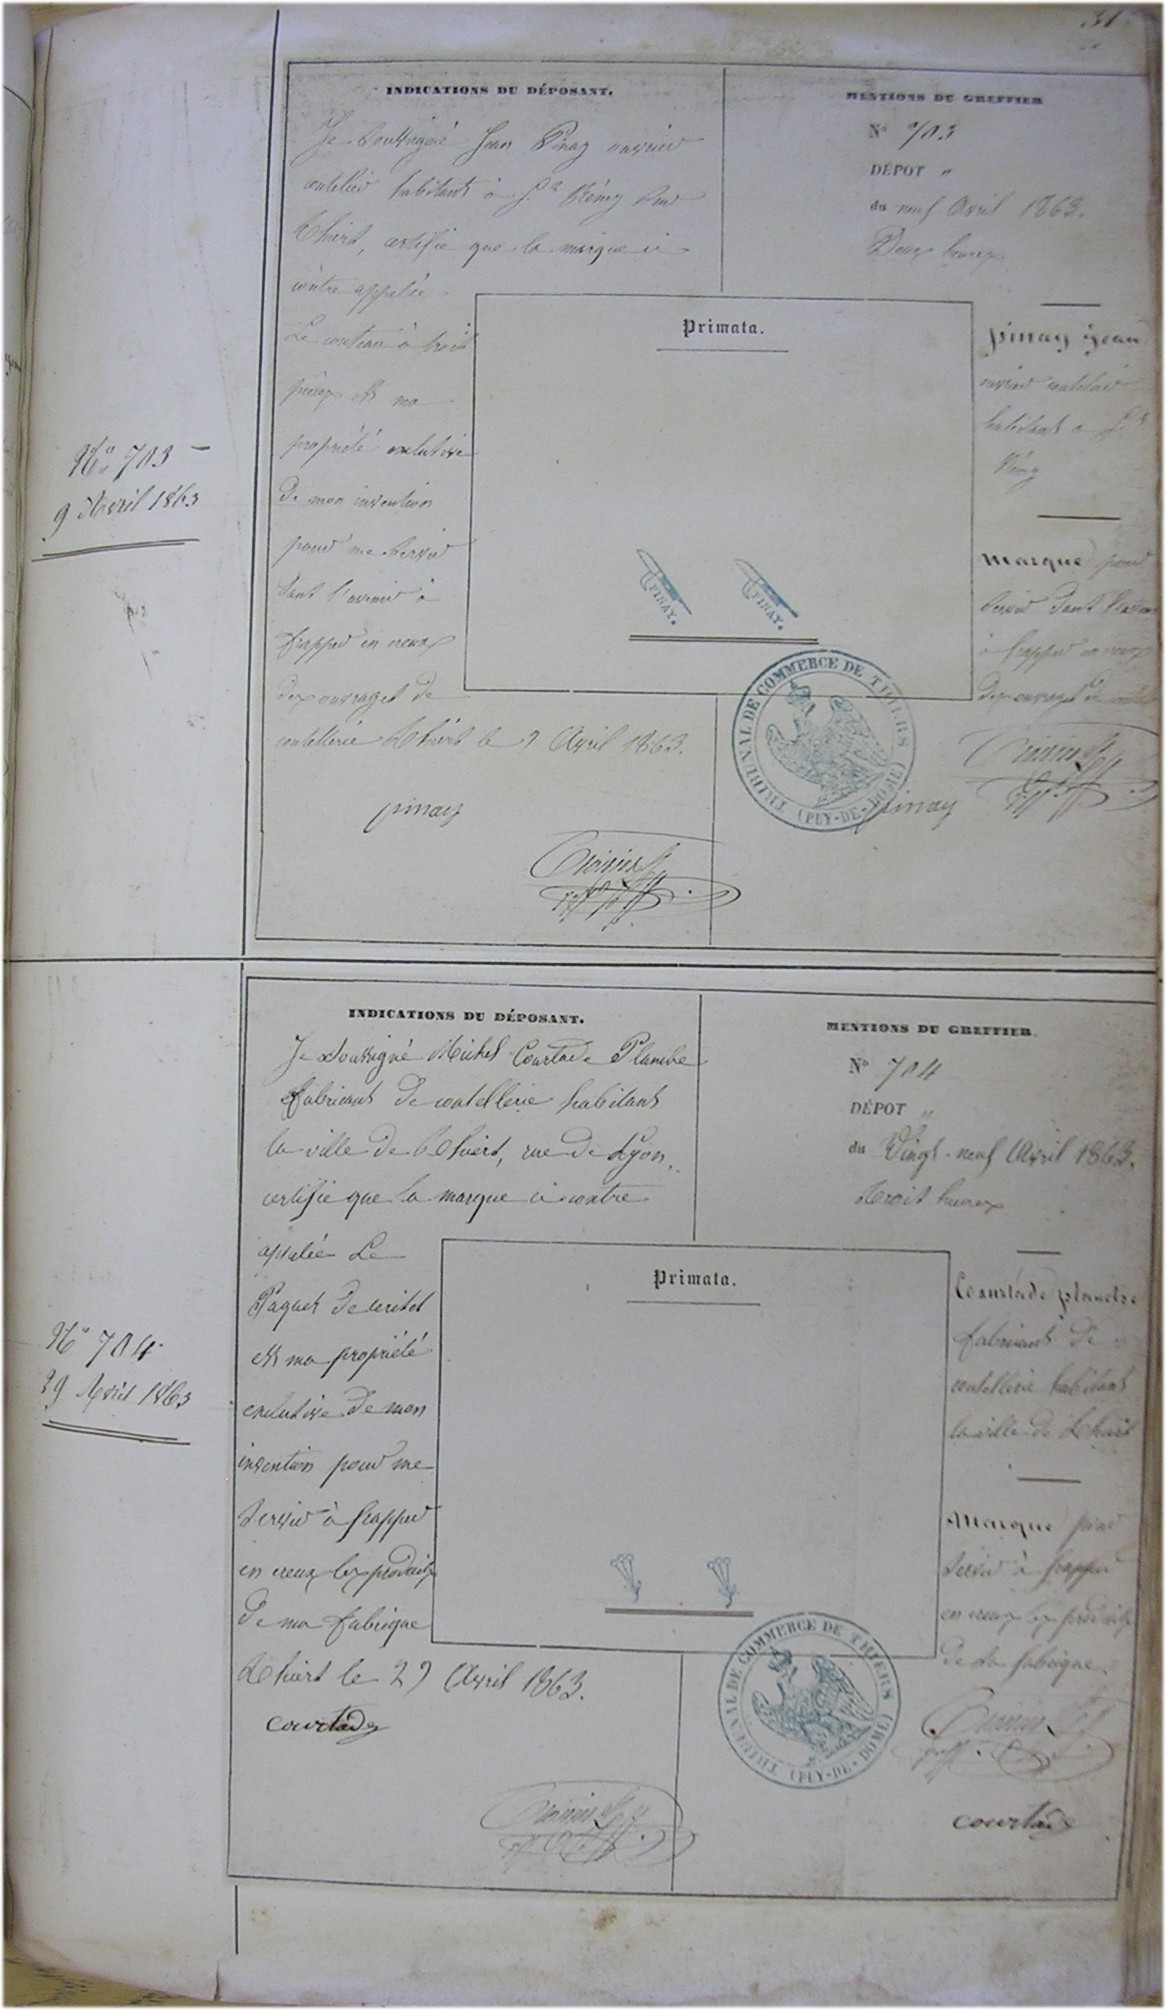 31
INDICATIONS DU DÉPOSANT.
Je soussigné Jean Pinay ouvrier
coutelier habitant à St Rémy sur
Thiers, certifie que la marque ci
contre appelée
Le couteau à trois
pièces est ma
propriété exclusive
de mon invention
pour me servir
dans l'avenir à
frapper en creux
des ouvrages de
coutellerie Thiers le 9 Avril 1863.
pinay
MENTIONS DU GREFFIER
N° 703
DÉPOT "
du neuf Avril 1863.
Deux heures
pinay jean
ouvrier coutelier
habitant à St
Rémy
Marque pour
servir dans l'avenir
à frapper en creux
des ouvrages de
pinay
Primata.
PINAY.
PINAY.
TRIBUNAL DE COMMERCE DE THIERS
(PUY-DE-DOME)
No. 703
9 Avril 1863
INDICATIONS DU DÉPOSANT.
Je soussigné Michel Courtade Planche
fabricant de coutellerie habitant
la ville de Thiers, rue de Lyon,
certifie que la marque ci contre
appelée Le
Paquet de
est ma propriété
exclusive de mon
invention pour me
servir à frapper
en creux les produits
de ma fabrique
Thiers le 29 Avril 1863.
courtade
MENTIONS DU GREFFIER
N° 704
DÉPOT "
du Vingt-neuf Avril 1863.
trois heures
Courtade planche
fabricant de
coutellerie habitant
la ville de Thiers
Marque pour
servir à frapper
en creux les produits
de sa fabrique.
courtade
Primata.
TRIBUNAL DE COMMERCE DE THIERS
(PUY-DE-DOME)
N° 704
29 Avril 1863